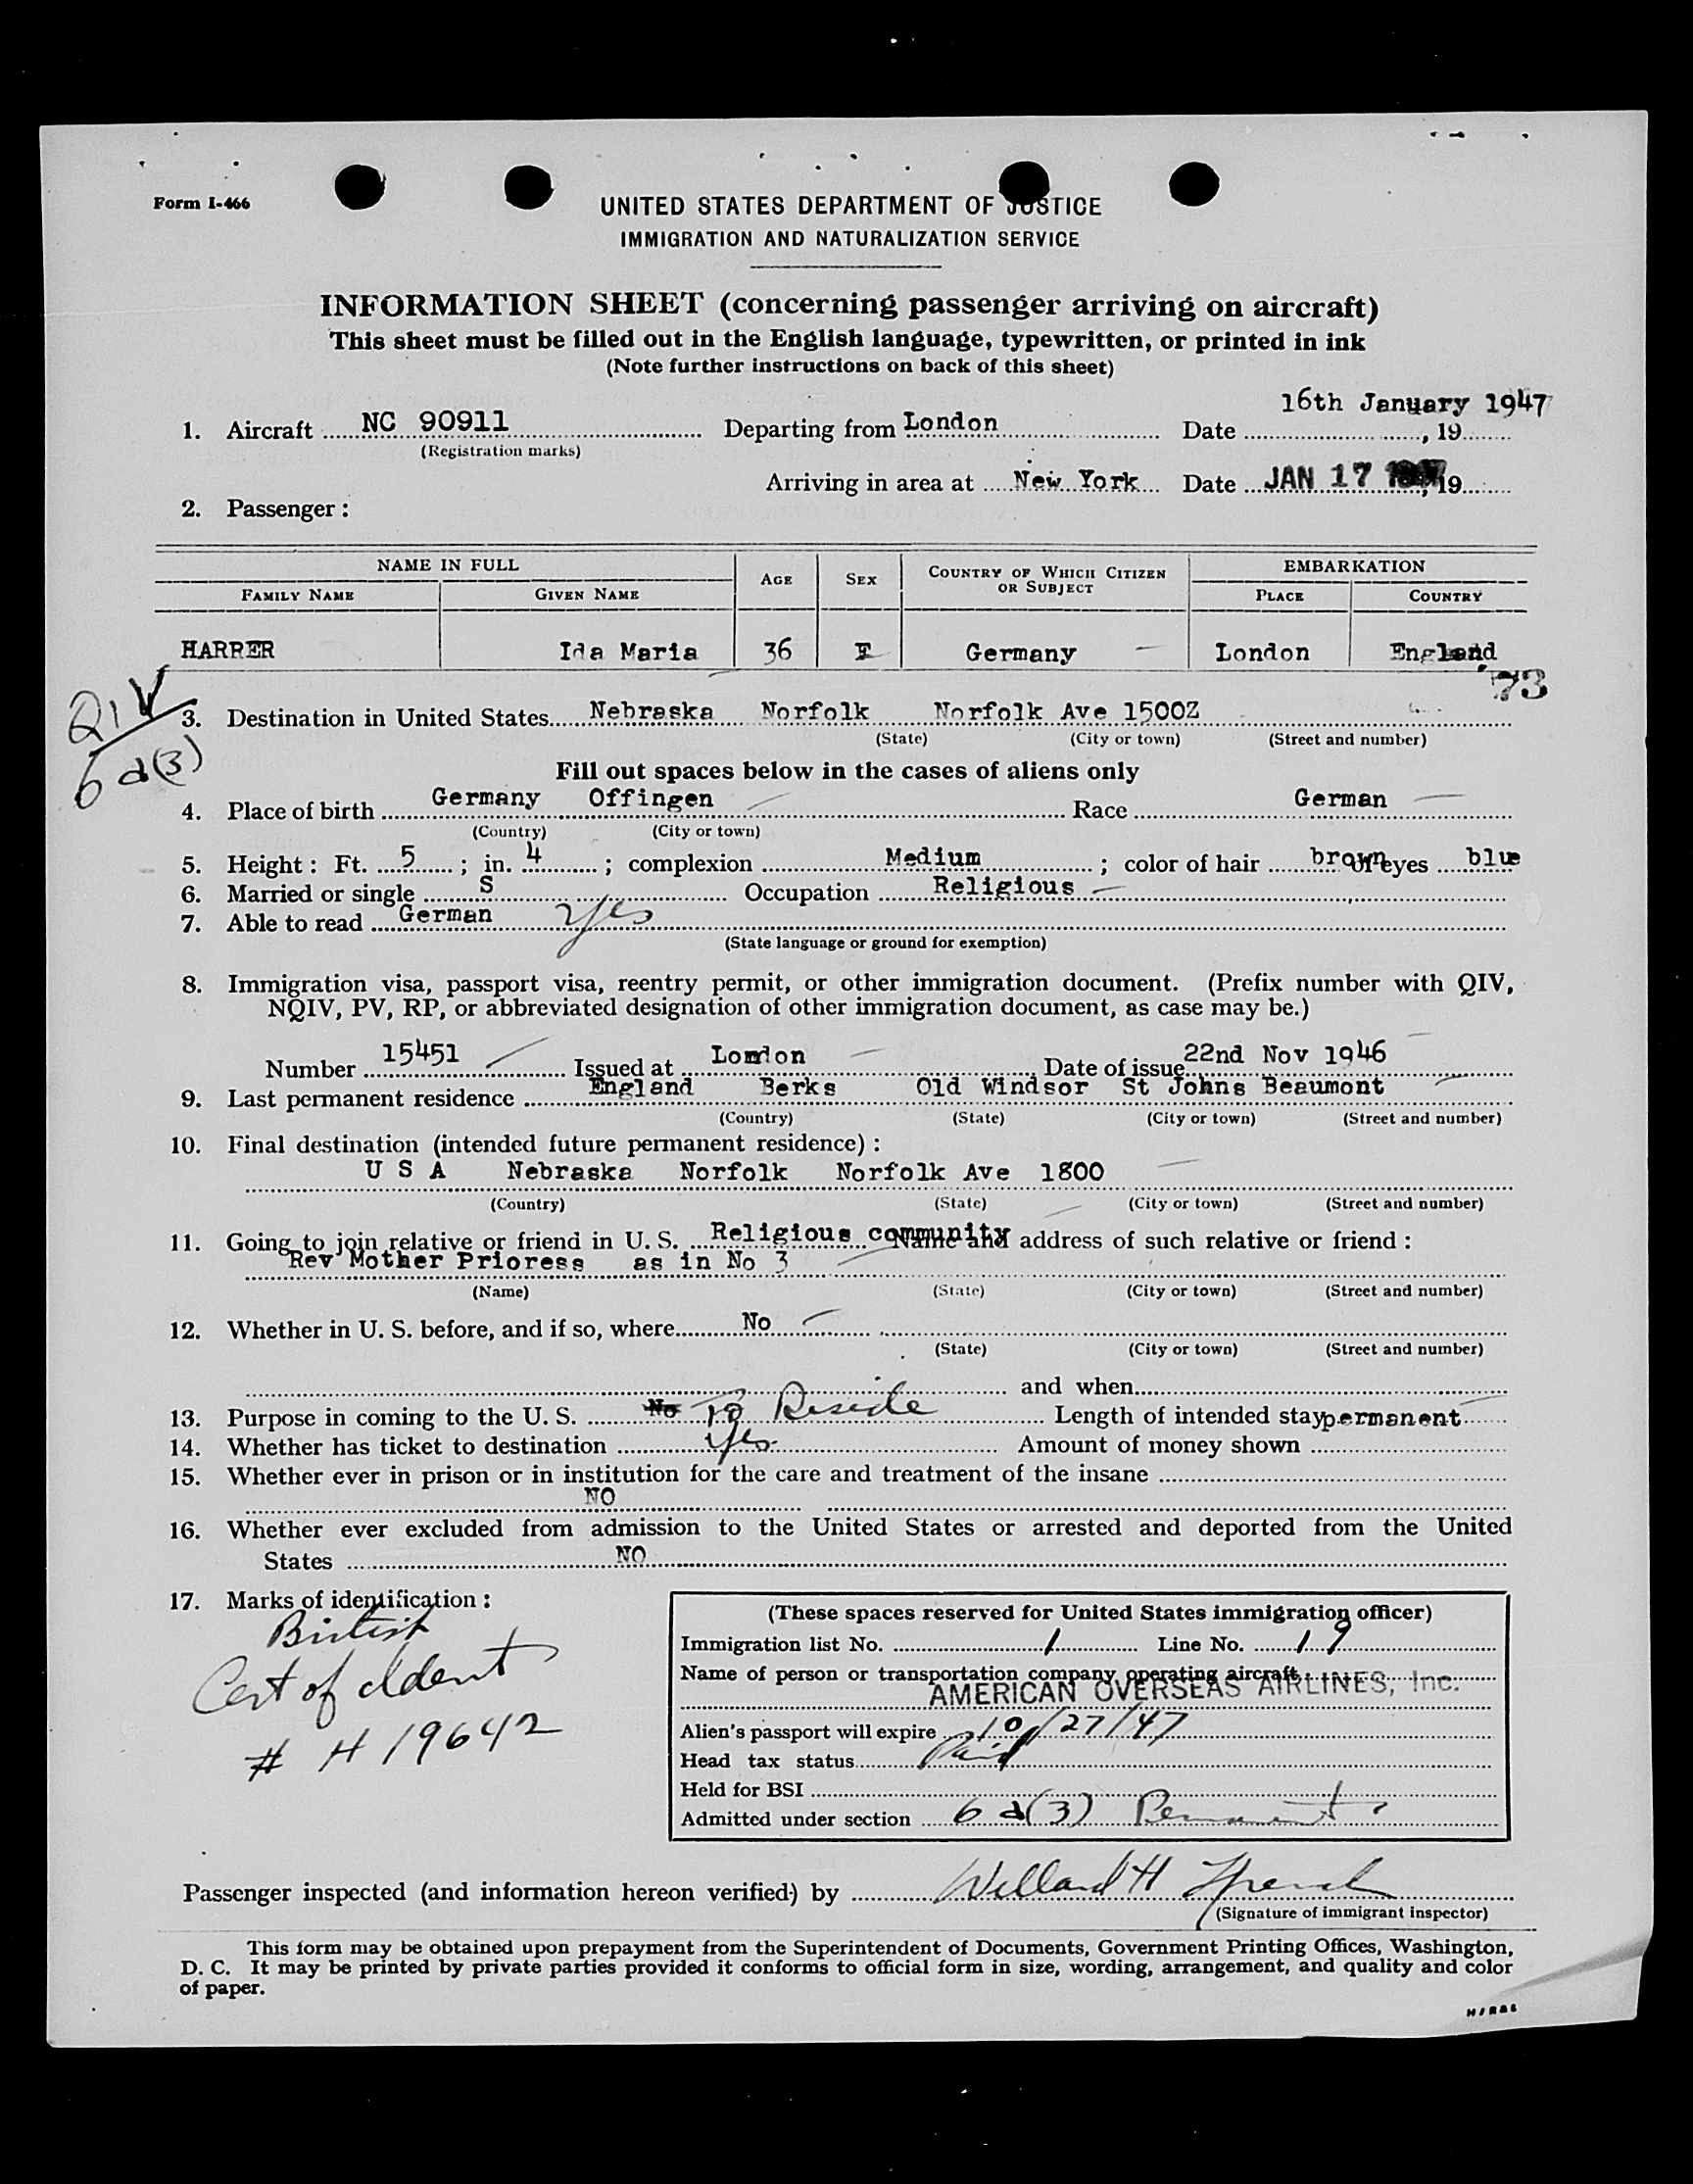 Form I-466
UNITED STATES DEPARTMENT OF JUSTICE
IMMIGRATION AND NATURALIZATION SERVICE
INFORMATION SHEET (concerning passenger arriving on aircraft)
This sheet must be filled out in the English language, typewritten, or printed in ink
(Note further instructions on back of this sheet)
16th January 1947
1. Aircraft NC 90911 Departing from London Date , 19
(Registration marks)
Arriving in area at New York Date JAN 17 , 19
2. Passenger:
NAME IN FULL AGE SEX COUNTRY OF WHICH CITIZEN OR SUBJECT EMBARKATION
FAMILY NAME GIVEN NAME PLACE COUNTRY
HARRER Ida Maria 36 F Germany London England
73
QIV
6 d(3)
3. Destination in United States Nebraska Norfolk Norfolk Ave 1500Z
(State) (City or town) (Street and number)
Fill out spaces below in the cases of aliens only
4. Place of birth Germany Offingen Race German
(Country) (City or town)
5. Height: Ft. 5; in. 4; complexion Medium; color of hair brown of eyes blue
6. Married or single S Occupation Religious
7. Able to read German Yes
(State language or ground for exemption)
8. Immigration visa, passport visa, reentry permit, or other immigration document. (Prefix number with QIV,
NQIV, PV, RP, or abbreviated designation of other immigration document, as case may be.)
Number 15451 Issued at London Date of issue 22nd Nov 1946
9. Last permanent residence England Berks Old Windsor St Johns Beaumont
(Country) (State) (City or town) (Street and number)
10. Final destination (intended future permanent residence):
U S A Nebraska Norfolk Norfolk Ave 1800
(Country) (State) (City or town) (Street and number)
11. Going to join relative or friend in U. S. Religious community Name and address of such relative or friend:
Rev Mother Prioress as in No 3
(Name) (State) (City or town) (Street and number)
12. Whether in U. S. before, and if so, where No
(State) (City or town) (Street and number)
and when
13. Purpose in coming to the U. S. No To Reside Length of intended stay permanent
14. Whether has ticket to destination Yes Amount of money shown
15. Whether ever in prison or in institution for the care and treatment of the insane
NO
16. Whether ever excluded from admission to the United States or arrested and deported from the United
States NO
17. Marks of identification:
British
Cert of Ident
# H 19642
(These spaces reserved for United States immigration officer)
Immigration list No. 1 Line No. 19
Name of person or transportation company operating aircraft
AMERICAN OVERSEAS AIRLINES, Inc.
Alien's passport will expire 10/27/47
Head tax status Paid
Held for BSI
Admitted under section 6 d(3) Permanent
Passenger inspected (and information hereon verified) by Willard H
(Signature of immigrant inspector)
This form may be obtained upon prepayment from the Superintendent of Documents, Government Printing Offices, Washington,
D. C. It may be printed by private parties provided it conforms to official form in size, wording, arrangement, and quality and color
of paper.